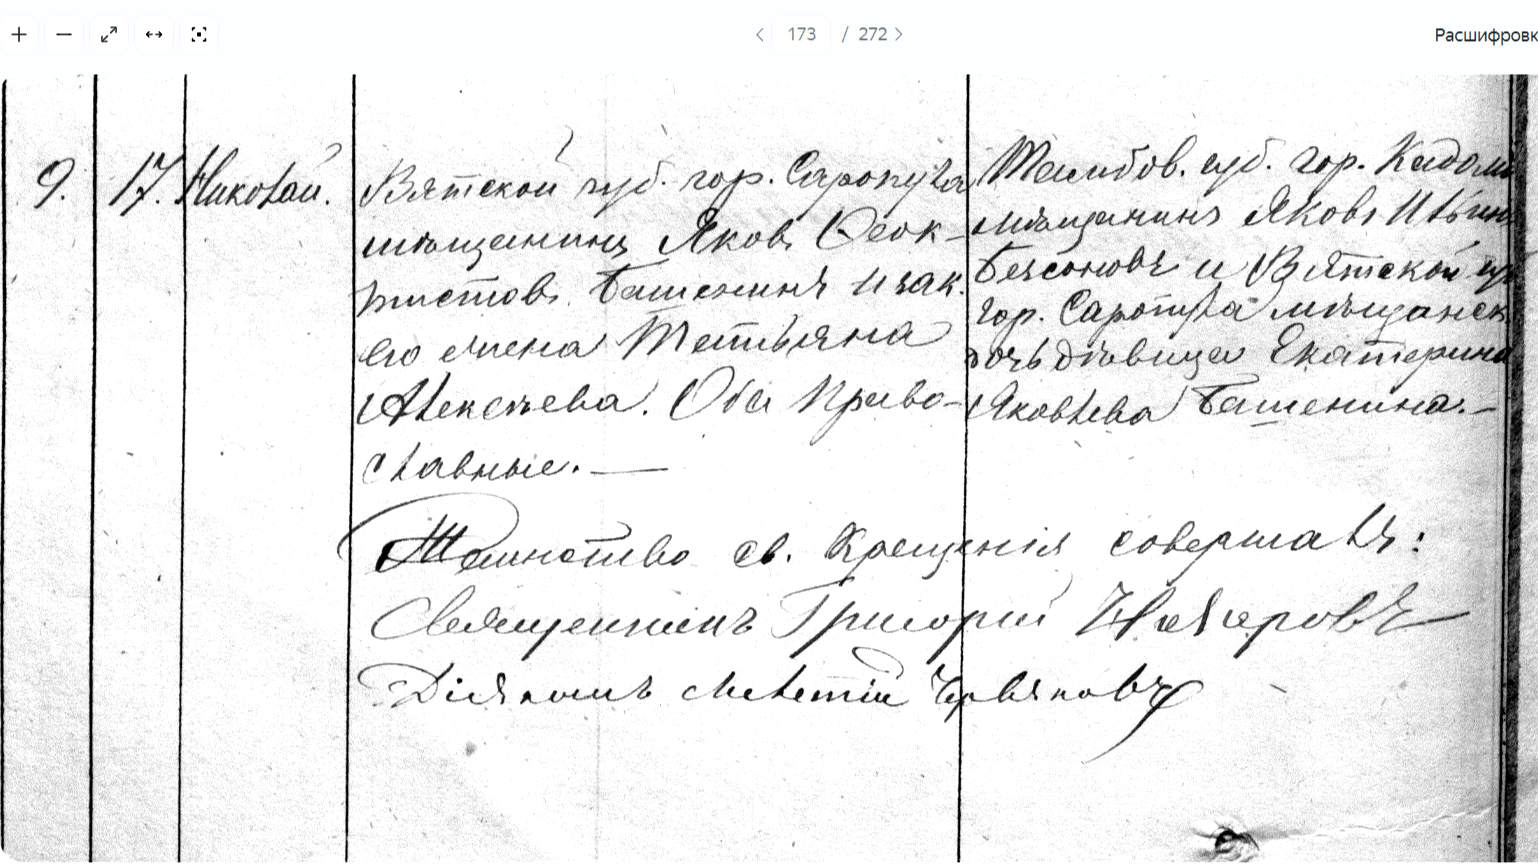 173 / 272
Расшифровк
9. 17. Николай.
Вятской губ. гор. Сарапула
мѣщанинъ Яковъ Ѳеок-
тистовъ Башенинъ и зак.
его жена Татьяна
Алексѣева. Оба право-
славные. —
Тамбов. губ. гор. Кадома
мѣщанинъ Яковъ Ильин
Безсоновъ и Вятской гу
гор. Сарапула мѣщанск.
дочь дѣвица Екатерина
Яковлева Башенина. —
Таинство св. Крещенія совершалъ:
Священникъ Григорій
Діаконъ Мелетій Червяковъ